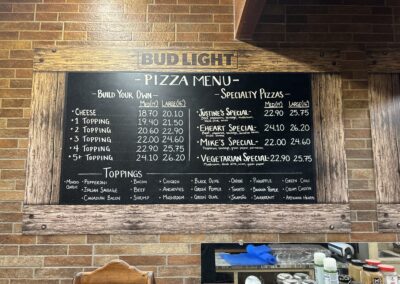 BUD LIGHT
- PIZZA MENU -
- BUILD YOUR OWN -
MED(14") LARGE(16")
· CHEESE 18.70 20.10
· 1 TOPPING 19.40 21.50
· 2 TOPPING 20.60 22.90
· 3 TOPPING 22.00 24.60
· 4 TOPPING 22.90 25.75
· 5+ TOPPING 24.10 26.20
- SPECIALTY PIZZAS -
MED(14") LARGE(16")
· JUSTINE'S SPECIAL- 22.90 25.75
· EHEART SPECIAL- 24.10 26.20
· MIKE'S SPECIAL- 22.00 24.60
· VEGETARIAN SPECIAL- 22.90 25.75
- TOPPINGS -
· MINCED GARLIC · PEPPERONI · BACON · CHICKEN · BLACK OLIVE · ONION · PINEAPPLE · GREEN CHILI
· ITALIAN SAUSAGE · BEEF · ANCHOVIES · GREEN PEPPER · TOMATO · BANANA PEPPER · CREAM CHEESE
· CANADIAN BACON · SHRIMP · MUSHROOM · GREEN OLIVE · JALAPEÑO · SAUERKRAUT · ARTICHOKE HEARTS